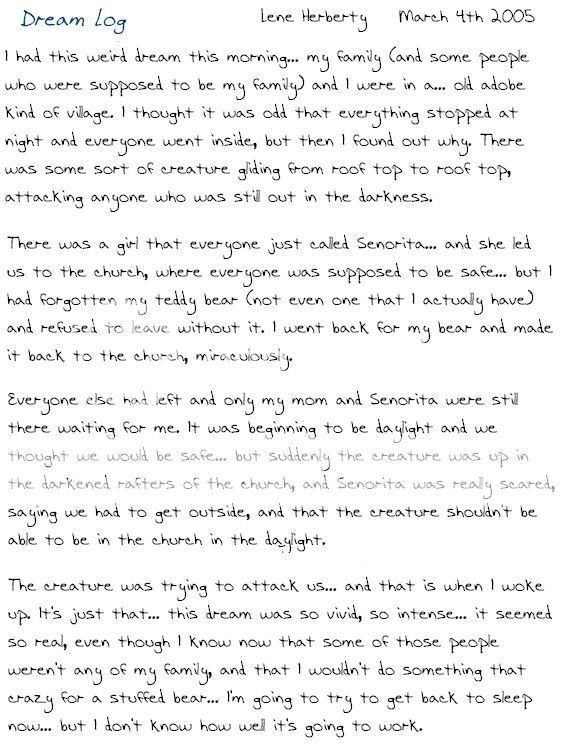 Dream Log Lene Herberty March 4th 2005
I had this weird dream this morning... my family (and some people
who were supposed to be my family) and I were in a... old adobe
kind of village. I thought it was odd that everything stopped at
night and everyone went inside, but then I found out why. There
was some sort of creature gliding from roof top to roof top,
attacking anyone who was still out in the darkness.
There was a girl that everyone just called Senorita... and she led
us to the church, where everyone was supposed to be safe... but I
had forgotten my teddy bear (not even one that I actually have)
and refused to leave without it. I went back for my bear and made
it back to the church, miraculously.
Everyone else had left and only my mom and Senorita were still
there waiting for me. It was beginning to be daylight and we
thought we would be safe... but suddenly the creature was up in
the darkened rafters of the church, and Senorita was really scared,
saying we had to get outside, and that the creature shouldn't be
able to be in the church in the daylight.
The creature was trying to attack us... and that is when I woke
up. It's just that... this dream was so vivid, so intense... it seemed
so real, even though I know now that some of those people
weren't any of my family, and that I wouldn't do something that
crazy for a stuffed bear... I'm going to try to get back to sleep
now... but I don't know how well it's going to work.